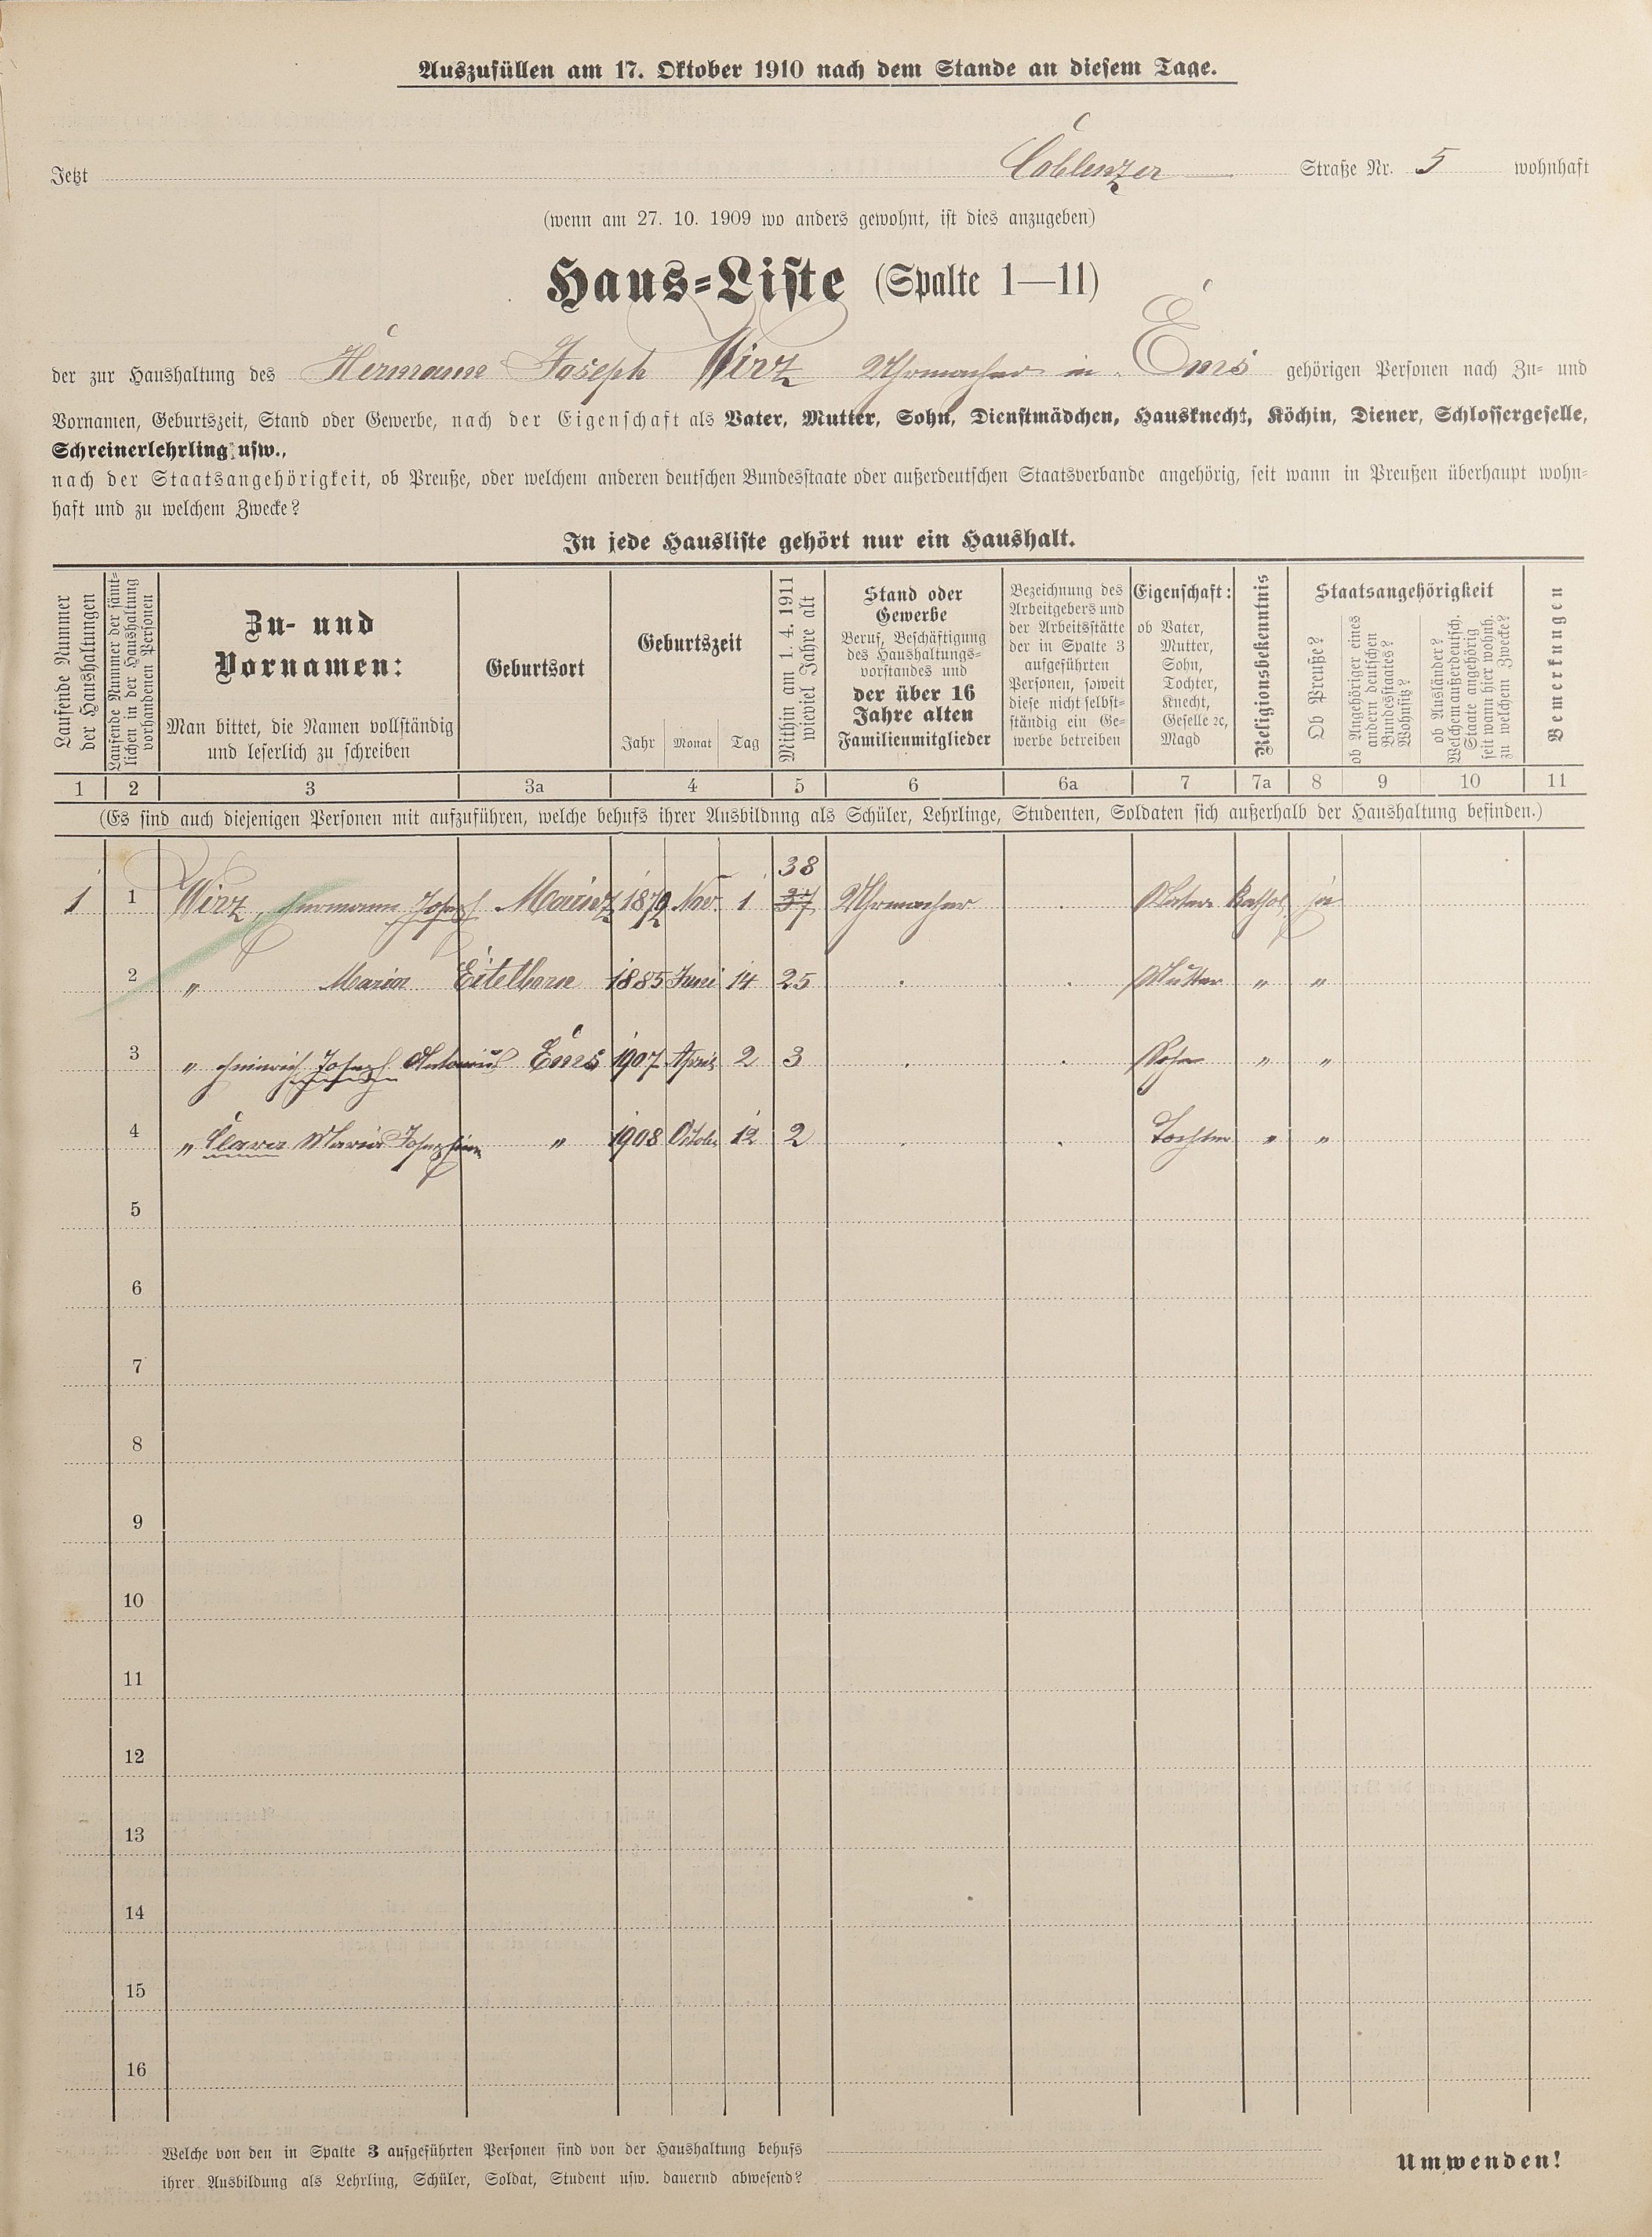 Auszufüllen am 17. Oktober 1910 nach dem Stande an diesem Tage.
Jetzt Coblenzer Straße Nr. 5 wohnhaft
(wenn am 27. 10. 1909 wo anders gewohnt, ist dies anzugeben)
Haus-Liste (Spalte 1—11)
der zur Haushaltung des Hermann Joseph Wirz Uhrmacher in Ems gehörigen Personen nach Zu- und
Vornamen, Geburtszeit, Stand oder Gewerbe, nach der Eigenschaft als Vater, Mutter, Sohn, Dienstmädchen, Hausknecht, Köchin, Diener, Schlossergeselle,
Schreinerlehrling usw.,
nach der Staatsangehörigkeit, ob Preuße, oder welchem anderen deutschen Bundesstaate oder außerdeutschen Staatsverbande angehörig, seit wann in Preußen überhaupt wohn-
haft und zu welchem Zwecke?
In jede Hausliste gehört nur ein Haushalt.
Laufende Nummer
der Haushaltungen
Laufende Nummer der sämt-
lichen in der Haushaltung
vorhandenen Personen
Zu- und
Vornamen:
Man bittet, die Namen vollständig
und leserlich zu schreiben
Geburtsort
Geburtszeit
Jahr Monat Tag
Mithin am 1. 4. 1911
wieviel Jahre alt
Stand oder
Gewerbe
Beruf, Beschäftigung
des Haushaltungs-
vorstandes und
der über 16
Jahre alten
Familienmitglieder
Bezeichnung des
Arbeitgebers und
der Arbeitsstätte
der in Spalte 3
aufgeführten
Personen, soweit
diese nicht selbst-
ständig ein Ge-
werbe betreiben
Eigenschaft:
ob Vater,
Mutter,
Sohn,
Tochter,
Knecht,
Geselle ꝛc,
Magd
Religionsbekenntnis
Staatsangehörigkeit
Ob Preuße?
ob Angehöriger eines
andern deutschen
Bundesstaates?
Wohnsitz?
ob Ausländer?
Welchem außerdeutsch.
Staate angehörig
seit wann hier wohnh.
zu welchem Zwecke?
Bemerkungen
1 2 3 3a 4 5 6 6a 7 7a 8 9 10 11
(Es sind auch diejenigen Personen mit aufzuführen, welche behufs ihrer Ausbildung als Schüler, Lehrlinge, Studenten, Soldaten sich außerhalb der Haushaltung befinden.)
38
1 1 Wirz, Hermann Josef Mainz Nov. 1 37 Uhrmacher Vater Kathol. ja
2 " Maria Eitelborn 1885 Juni 14 25 Mutter " "
3 " Heinrich Josef Antonius Ems 1907 April 2 3 Sohn " "
4 " Clara Maria Josephine " 1908 Octobr 12 2 Tochter " "
5
6
7
8
9
10
11
12
13
14
15
16
Welche von den in Spalte 3 aufgeführten Personen sind von der Haushaltung behufs
ihrer Ausbildung als Lehrling, Schüler, Soldat, Student usw. dauernd abwesend?
Umwenden!